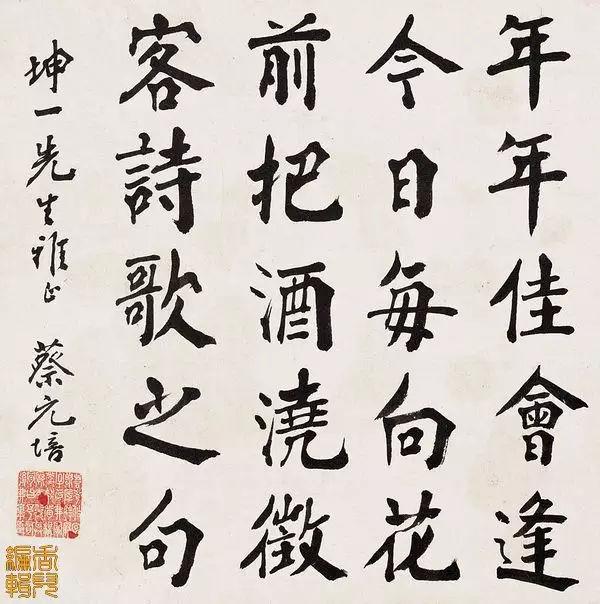 年年佳會逢
今日每向花
前把酒澆徵
客詩歌之句
坤一先生雅正 蔡元培